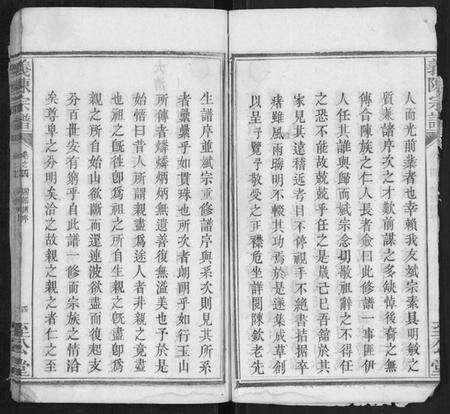 義陳宗譜
人而光前輩者也幸賴我友斌宗素具明敏之
質兼譜序次之才歎前謀之多缺悼後裔之無
傳合陳族之仁人長者僉曰此修譜一事匪伊
人任其誰與歸而斌宗念切敬祖辭之不得任
之恐不能故兢兢乎任之是歲己巳吾館於其
家見其遠稽近考目不停視手不絕書拮据卒
瘏雖風雨晦明不輟其功焉於是遂集成草創
以呈予覽予敬受之正襟危坐詳閱陳欽老先
生譜序並斌宗重修譜序與釆次則見其所系
者纍纍乎如貫珠也所次者朗朗乎如行玉山
所傳者燐燐炳炳無遺善復無溢美也予於是
始悟曰昔人所謂親盡為途人者非親之竟盡
也祖之旣往卽為祖之所自生親之旣盡卽為
親之所自始山欲斷而還連波欲盡而復起支
分百世安有窮乎自此譜一修而宗族之情洽
矣尊卑之分明矣治之故親之親之者仁之至
義陳宗譜
卷之四
四
至公堂
至公堂